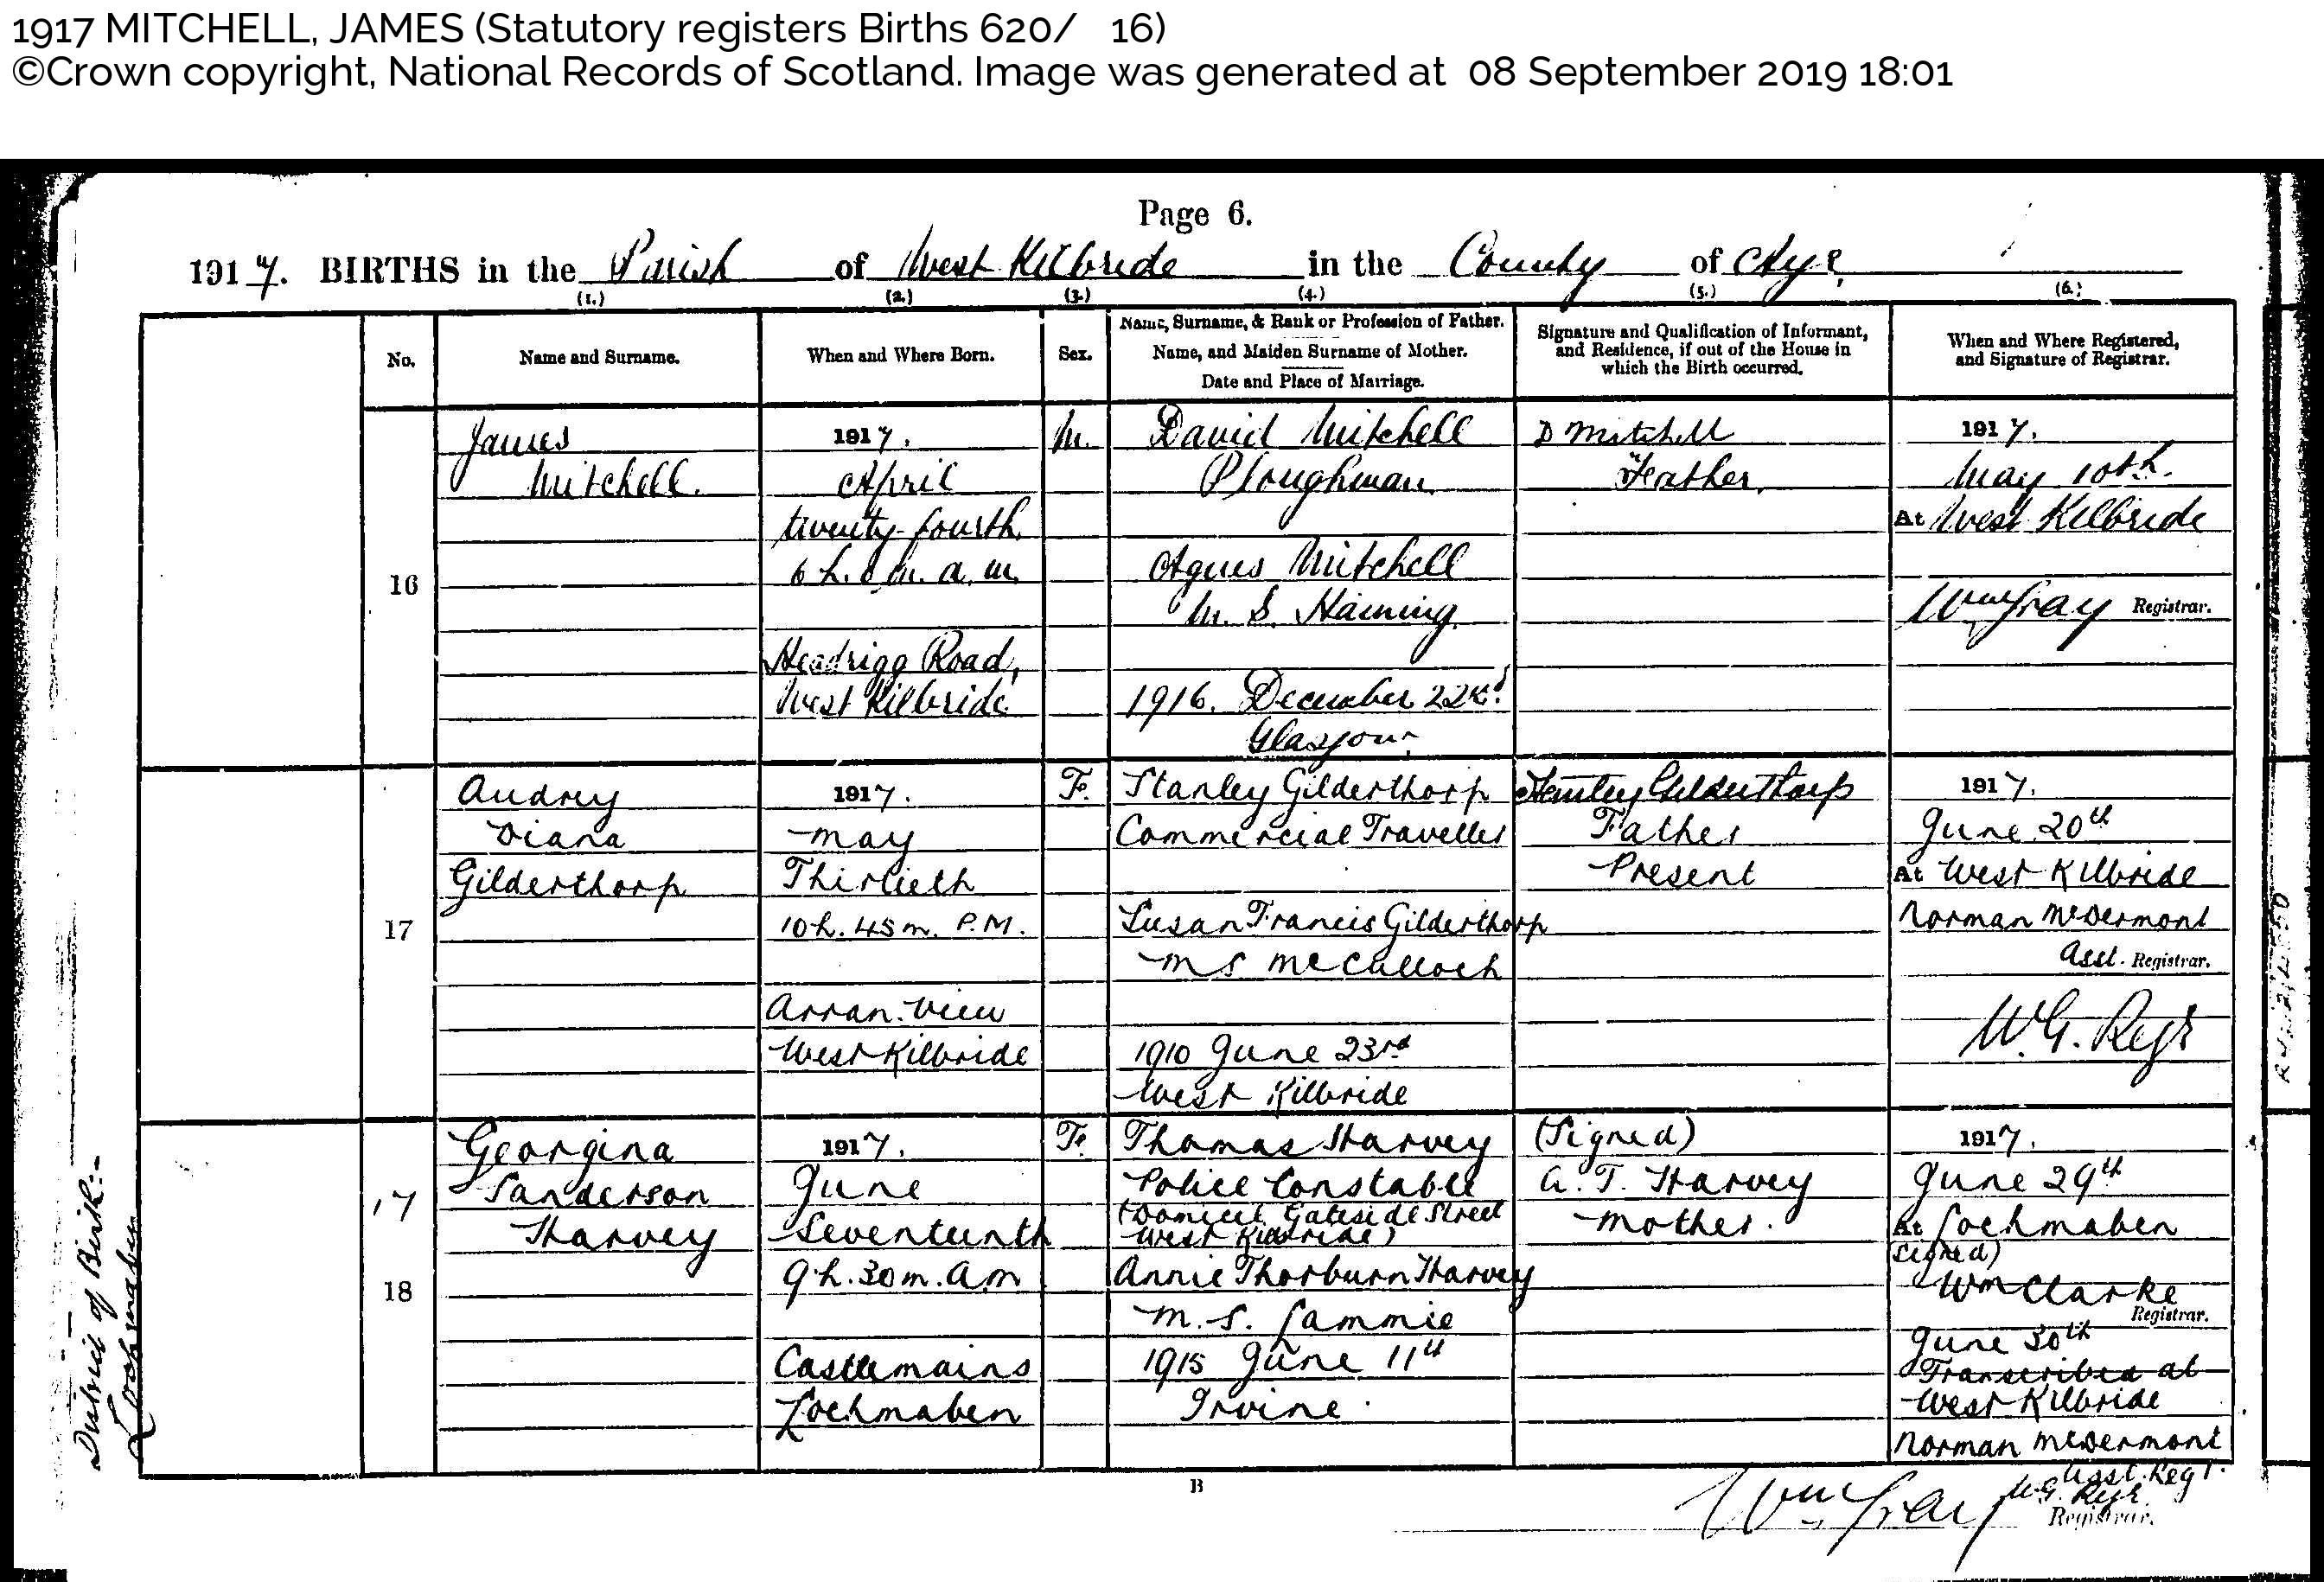 1917 MITCHELL, JAMES (Statutory registers Births 620/   16)
©Crown copyright, National Records of Scotland. Image was generated at  08 September 2019 18:01
Page 6.
1917. BIRTHS in the Parish of West Kilbride in the County of Ayr.
(1.) (2.) (3.) (4.) (5.) (6.)
No.
Name and Surname.
When and Where Born.
Sex.
Name, Surname, & Rank or Profession of Father.
Name, and Maiden Surname of Mother.
Date and Place of Marriage.
Signature and Qualification of Informant,
and Residence, if out of the House in
which the Birth occurred.
When and Where Registered,
and Signature of Registrar.
16
James
Mitchell.
1917.
April
twenty-fourth
6 h. 0 m. a.m.
Headrigg Road,
West Kilbride
M.
David Mitchell
Ploughman
Agnes Mitchell
M. S. Haining
1916. December 22nd
Glasgow
D Mitchell
Father.
1917.
May 10th.
At West Kilbride
Wm Gray Registrar.
17
Audrey
Diana
Gilderthorp
1917.
May
Thirtieth
10 h. 45 m. P.M.
Arran View
West Kilbride
F.
Stanley Gilderthorp
Commercial Traveller
Susan Francis Gilderthorp
M S McCulloch
1910 June 23rd
West Kilbride
Stanley Gilderthorp
Father
Present
1917.
June 20th
At West Kilbride
Norman McDermont
Asst. Registrar.
W.G. Regr
17
18
Georgina
Sanderson
Harvey
1917.
June
Seventeenth
9 h. 30 m. A.M
Castlemains
Lochmaben
F.
Thomas Harvey
Police Constable
(Domicil Gateside Street
West Kilbride)
Annie Thorburn Harvey
M. S. Lammie
1915 June 11th
Irvine
(Signed)
A. T. Harvey
Mother.
1917.
June 29th
At Lochmaben
(Signed)
Wm Clarke
Registrar.
June 30th
Transcribed at
West Kilbride
Norman McDermont
Asst. Regr.
W.G. Regr.
Wm Gray Registrar.
B
District of Birth:-
Lochmaben